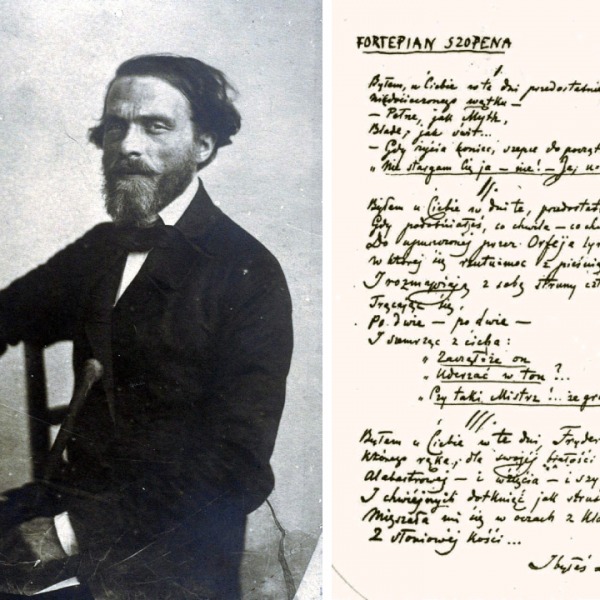 FORTEPIAN SZOPENA
I.
Byłem u Ciebie w te dni przedostatnie
Niedocieczonego wątku —
— Pełne, jak Myth,
Blade, jak świt...
— Gdy życia koniec, szepce do począt
„ Nie stargam Cię ja — nie! — Ja, u
II.
Byłem u Ciebie w dni te, przedostat
Gdy podobniałeś, co chwila — co ch
Do upuszczonej przez Orfeja lyr
W której się rzutu-moc z pieśnią
I rozmawiają z sobą struny czt
Trącając się,
Po dwie — po dwie —
I szemrząc z cicha:
„ Zacząłże on
„ Uderzać w ton?...
„ Czy taki Mistrz!... że gra
III.
Byłem u Ciebie w te dni, Fryder
Którego ręka, dla swojej białości
Alabastrowej — i wzięcia — i szy
I chwiejnych dotknięć jak stru
Mięszała mi się w oczach z kla
Z słoniowej kości...
I byłeś